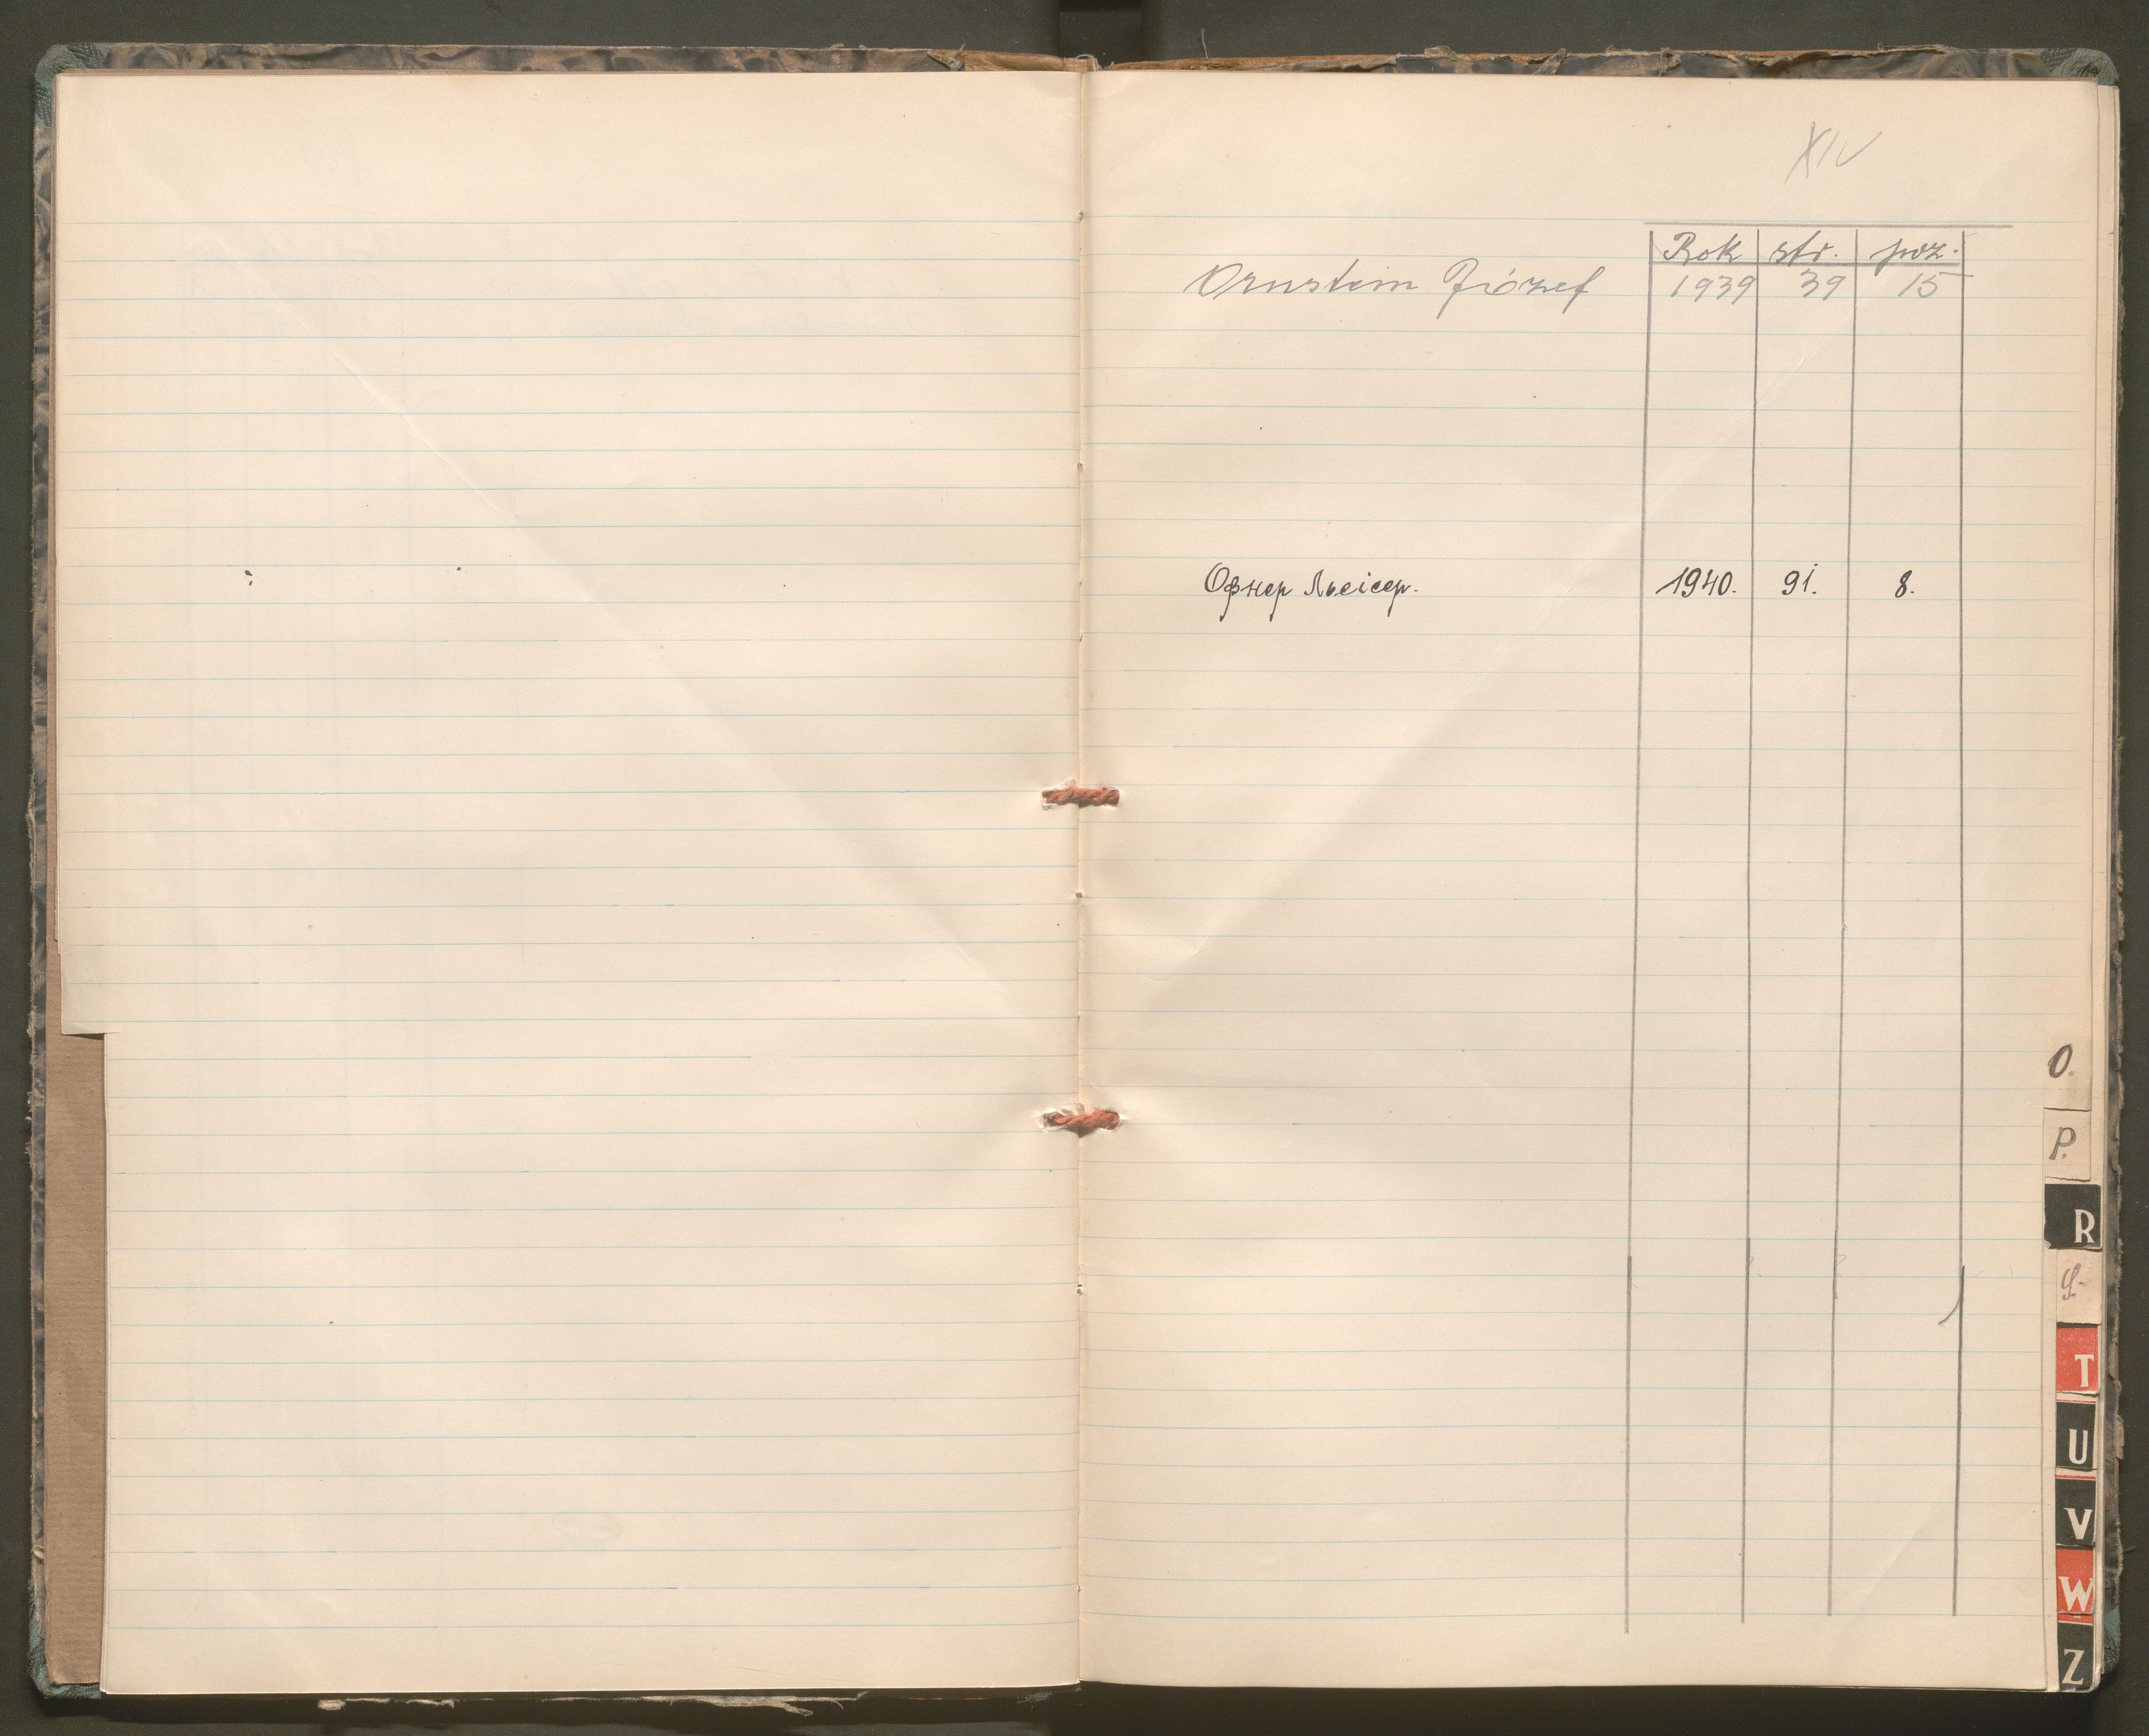 XIV
Rok str. poz.
Ornstein Józef 1939 39 15
Офнер Льейсер. 1940. 91. 8.
O.
P.
R
S.
T
U
V
W
Z